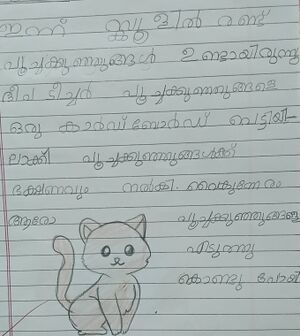 ഇന്ന് സ്കൂളിൽ രണ്ട്
പൂച്ചക്കുഞ്ഞുങ്ങൾ ഉണ്ടായിരുന്നു
ദീപ ടീച്ചർ പൂച്ചക്കുഞ്ഞുങ്ങളെ
ഒരു കാർഡ്ബോർഡ് പെട്ടിയി-
ലാക്കി പൂച്ചക്കുഞ്ഞുങ്ങൾക്ക്
ഭക്ഷണവും നൽകി. വൈകുന്നേരം
ആരോ പൂച്ചക്കുഞ്ഞുങ്ങളെ
എടുത്തു
കൊണ്ടു പോയി